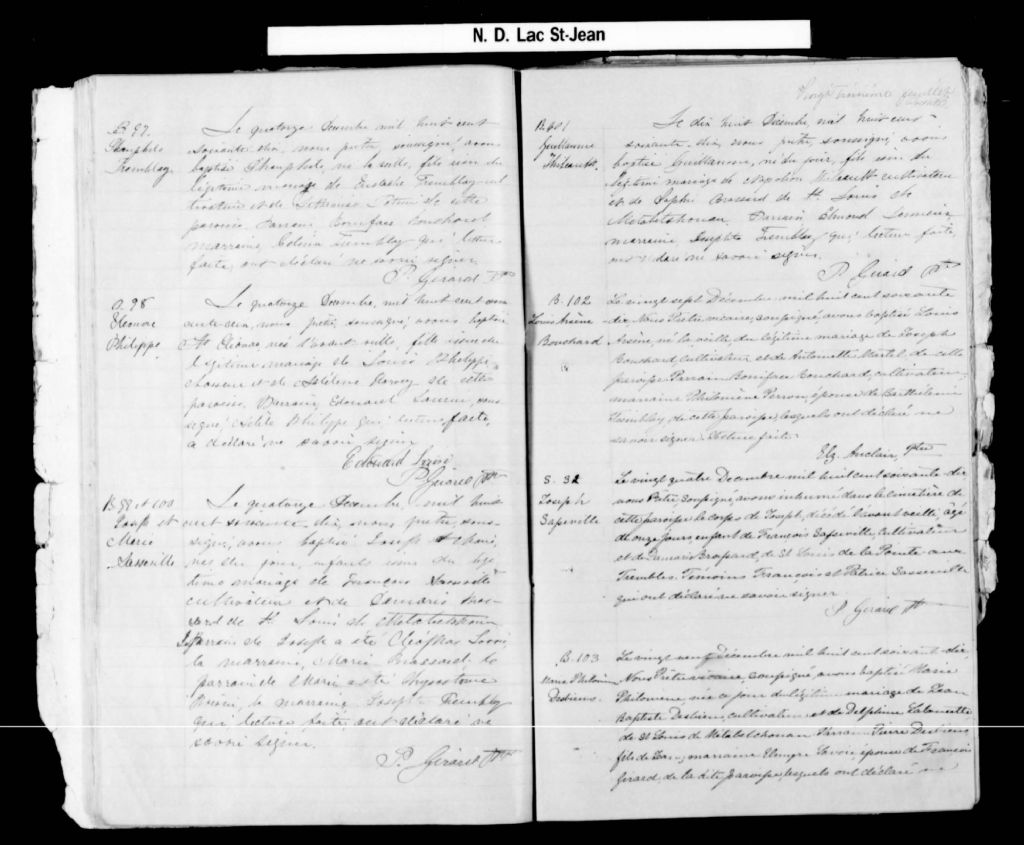 N. D. Lac St-Jean
B. 97.
Théophile
Tremblay
Le quatorze Décembre mil huit cent
soixante dix, nous prêtre, soussigné, avons
baptisé Théophile, né la veille, fils issu du
légitime mariage de Eustache Tremblay cul-
tivateur et de de cette
paroisse. Parrain Boniface Bouchard
marraine, Tremblay qui, lecture
faite, ont déclaré ne savoir signer.
P. Girard Ptre
B. 98
Eléonore
Philippe
Le quatorze Décembre, mil huit cent soix
ante-dix, nous prêtre, soussigné, avons baptisé
née l'avant veille, fille issue du
légitime mariage de Louis Philippe
chasseur et de Hélène de cette
paroisse. Parrain, Edouard sous
signé, Philippe qui, lecture faite,
a déclaré ne savoir signer
Edouard
P. Girard Ptre
B 99 et 100
Joseph et
Marie
Lasseville
Le quatorze Décembre, mil huit
cent soixante dix, nous prêtre, sous-
signé, avons baptisé Joseph et Marie,
nés du jour, enfants issus du légi-
time mariage de François Lasseville
cultivateur et de Damaris Bras-
sard de St. Louis de Metabetchouan
Parrain de Joseph a été Cléophas
la marraine, Marie Brassard; le
parrain de Marie a été
la marraine Joseph Tremblay
qui lecture faite, ont déclaré ne
savoir signer.
P. Girard Ptre
Vingt troisième feuillet
B. 101
Guillaume
Thibeault.
Le dix huit Décembre, mil huit cent
soixante, dix, nous prêtre, soussigné, avons
baptisé Guillaume, né du jour, fils issu du
légitime mariage de Napoléon Thibeault cultivateur
et de Sophie Brassard de St. Louis de
Metabetchouan Parrain Edmond
marraine, Josephte Tremblay qui, lecture faite,
ont déclaré ne savoir signer.
P. Girard Ptre
B. 102
Louis Arsène
Bouchard
Le vingt sept Décembre mil huit cent soixante
dix Nous Prêtre vicaire, soussigné avons baptisé Louis
Arsène, né la veille du légitime mariage de Joseph
Bouchard Cultivateur et de Antoinette Martel de cette
paroisse Parrain Boniface Bouchard, cultivateur;
marraine Philomène Perron, épouse de Barthélemie
Tremblay, de cette paroisse, lesquels ont déclaré ne
savoir signer. Lecture faite.
Elz. Auclair, Ptre
S. 32
Joseph
Lasseville
Le vingt quatre Décembre mil huit cent soixante dix
nous Prêtre soussigné, avons inhumé dans le cimetière de
cette paroisse le corps de Joseph, décédé l'avant veille, agé
de onze jours, enfant de François Lasseville, Cultivateur
et de Damaris Brassard, de St Louis de la Pointe aux
Trembles. Témoins François et Patrice Lasseville
qui ont déclaré ne savoir signer
P. Girard Ptre
B. 103
Marie Philomène
Desbiens.
Le vingt neuf Décembre mil huit cent soixante dix
Nous Prêtre vicaire, soussigné avons baptisé Marie
Philomène née ce jour du légitime mariage de Jean
Baptiste Desbiens, cultivateur et de Delphine
de St Louis de Metabetchouan Parrain Pierre Desbiens
fils de Jean; marraine Elmyre Savoie, épouse de François
Girard, de la dite paroisse, lesquels ont déclaré ne